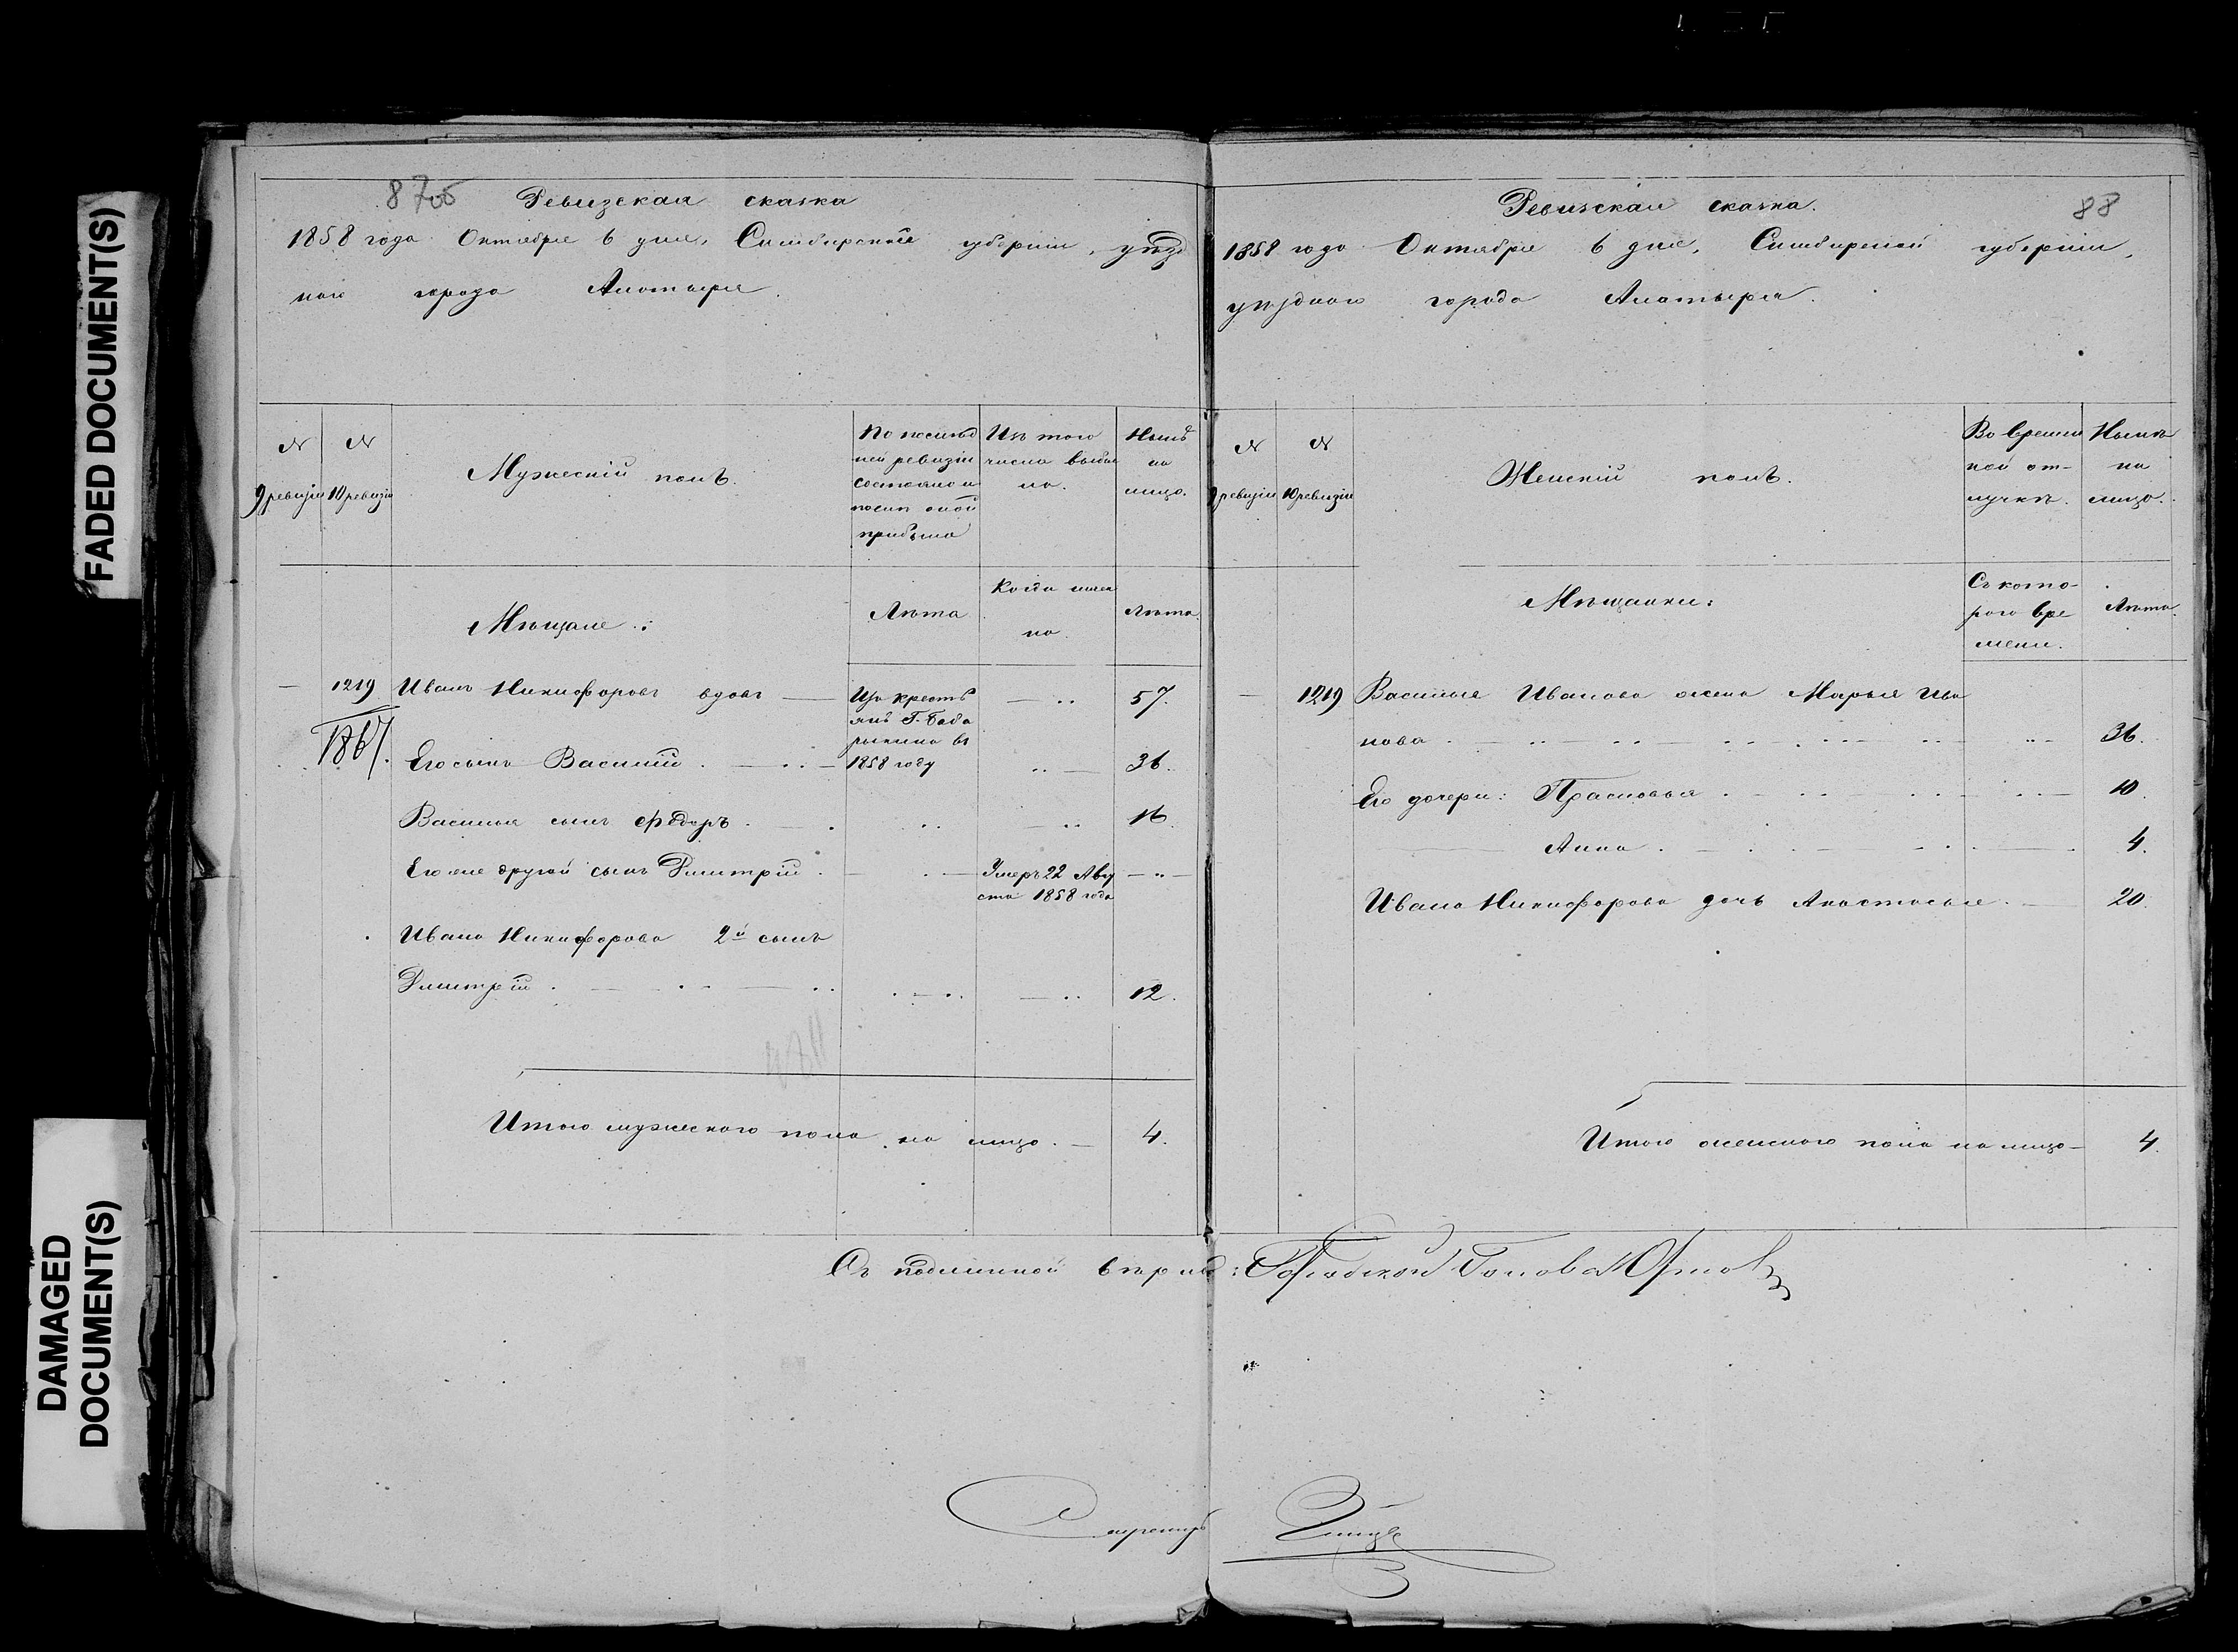 FADED DOCUMENT(S)
DAMAGED
DOCUMENT(S)
Ревизская сказка
1858 года Октября 6 дня, Симбирской губернии, уѣзд
наго города Алатыря.
№
9 ревизіи
№
10 ревизіи
Мужескій полъ.
По послѣд
ней ревизіи
состояло и
послѣ оной
прибыло
Изъ того
числа выбы
ло.
Нынѣ
на
лицо.
Мѣщане:
Лѣта
Когда имен
но.
Лѣта.
— 1219 Иванъ Никифоровъ вдовъ — Изъ кресть — 57.
янъ Г. Баба
рыкина въ
1858 году
186/.
Его сынъ Василий — 36.
Василья сынъ Федоръ. — 16.
Его же другой сынъ Дмитрій. — Умеръ 22 Авгу
ста 1858 года
Ивана Никифорова 2й сынъ
Дмитрій. — 12.
Итого мужескаго пола на лицо. — 4.
Съ подлинной вѣрно:
Секретарь
Ревизская сказка.
88
1858 года Октября 6 дня, Симбирской губерніи,
уѣзднаго города Алатыря.
№
9 ревизіи
№
10 ревизіи
Женскій полъ.
Во времен
ной от-
лучкѣ.
Нынѣ
на
лицо.
Мѣщанки:
Съ кото-
рого вре
мени.
Лѣта.
— 1219 Василья Иванова жена Марья Ива
нова — 36.
Его дочери: Прасковья — 10.
Анна — 4.
Ивана Никифорова дочь Анастасья — 20.
Итого женскаго пола на лицо — 4.
Городской Голова